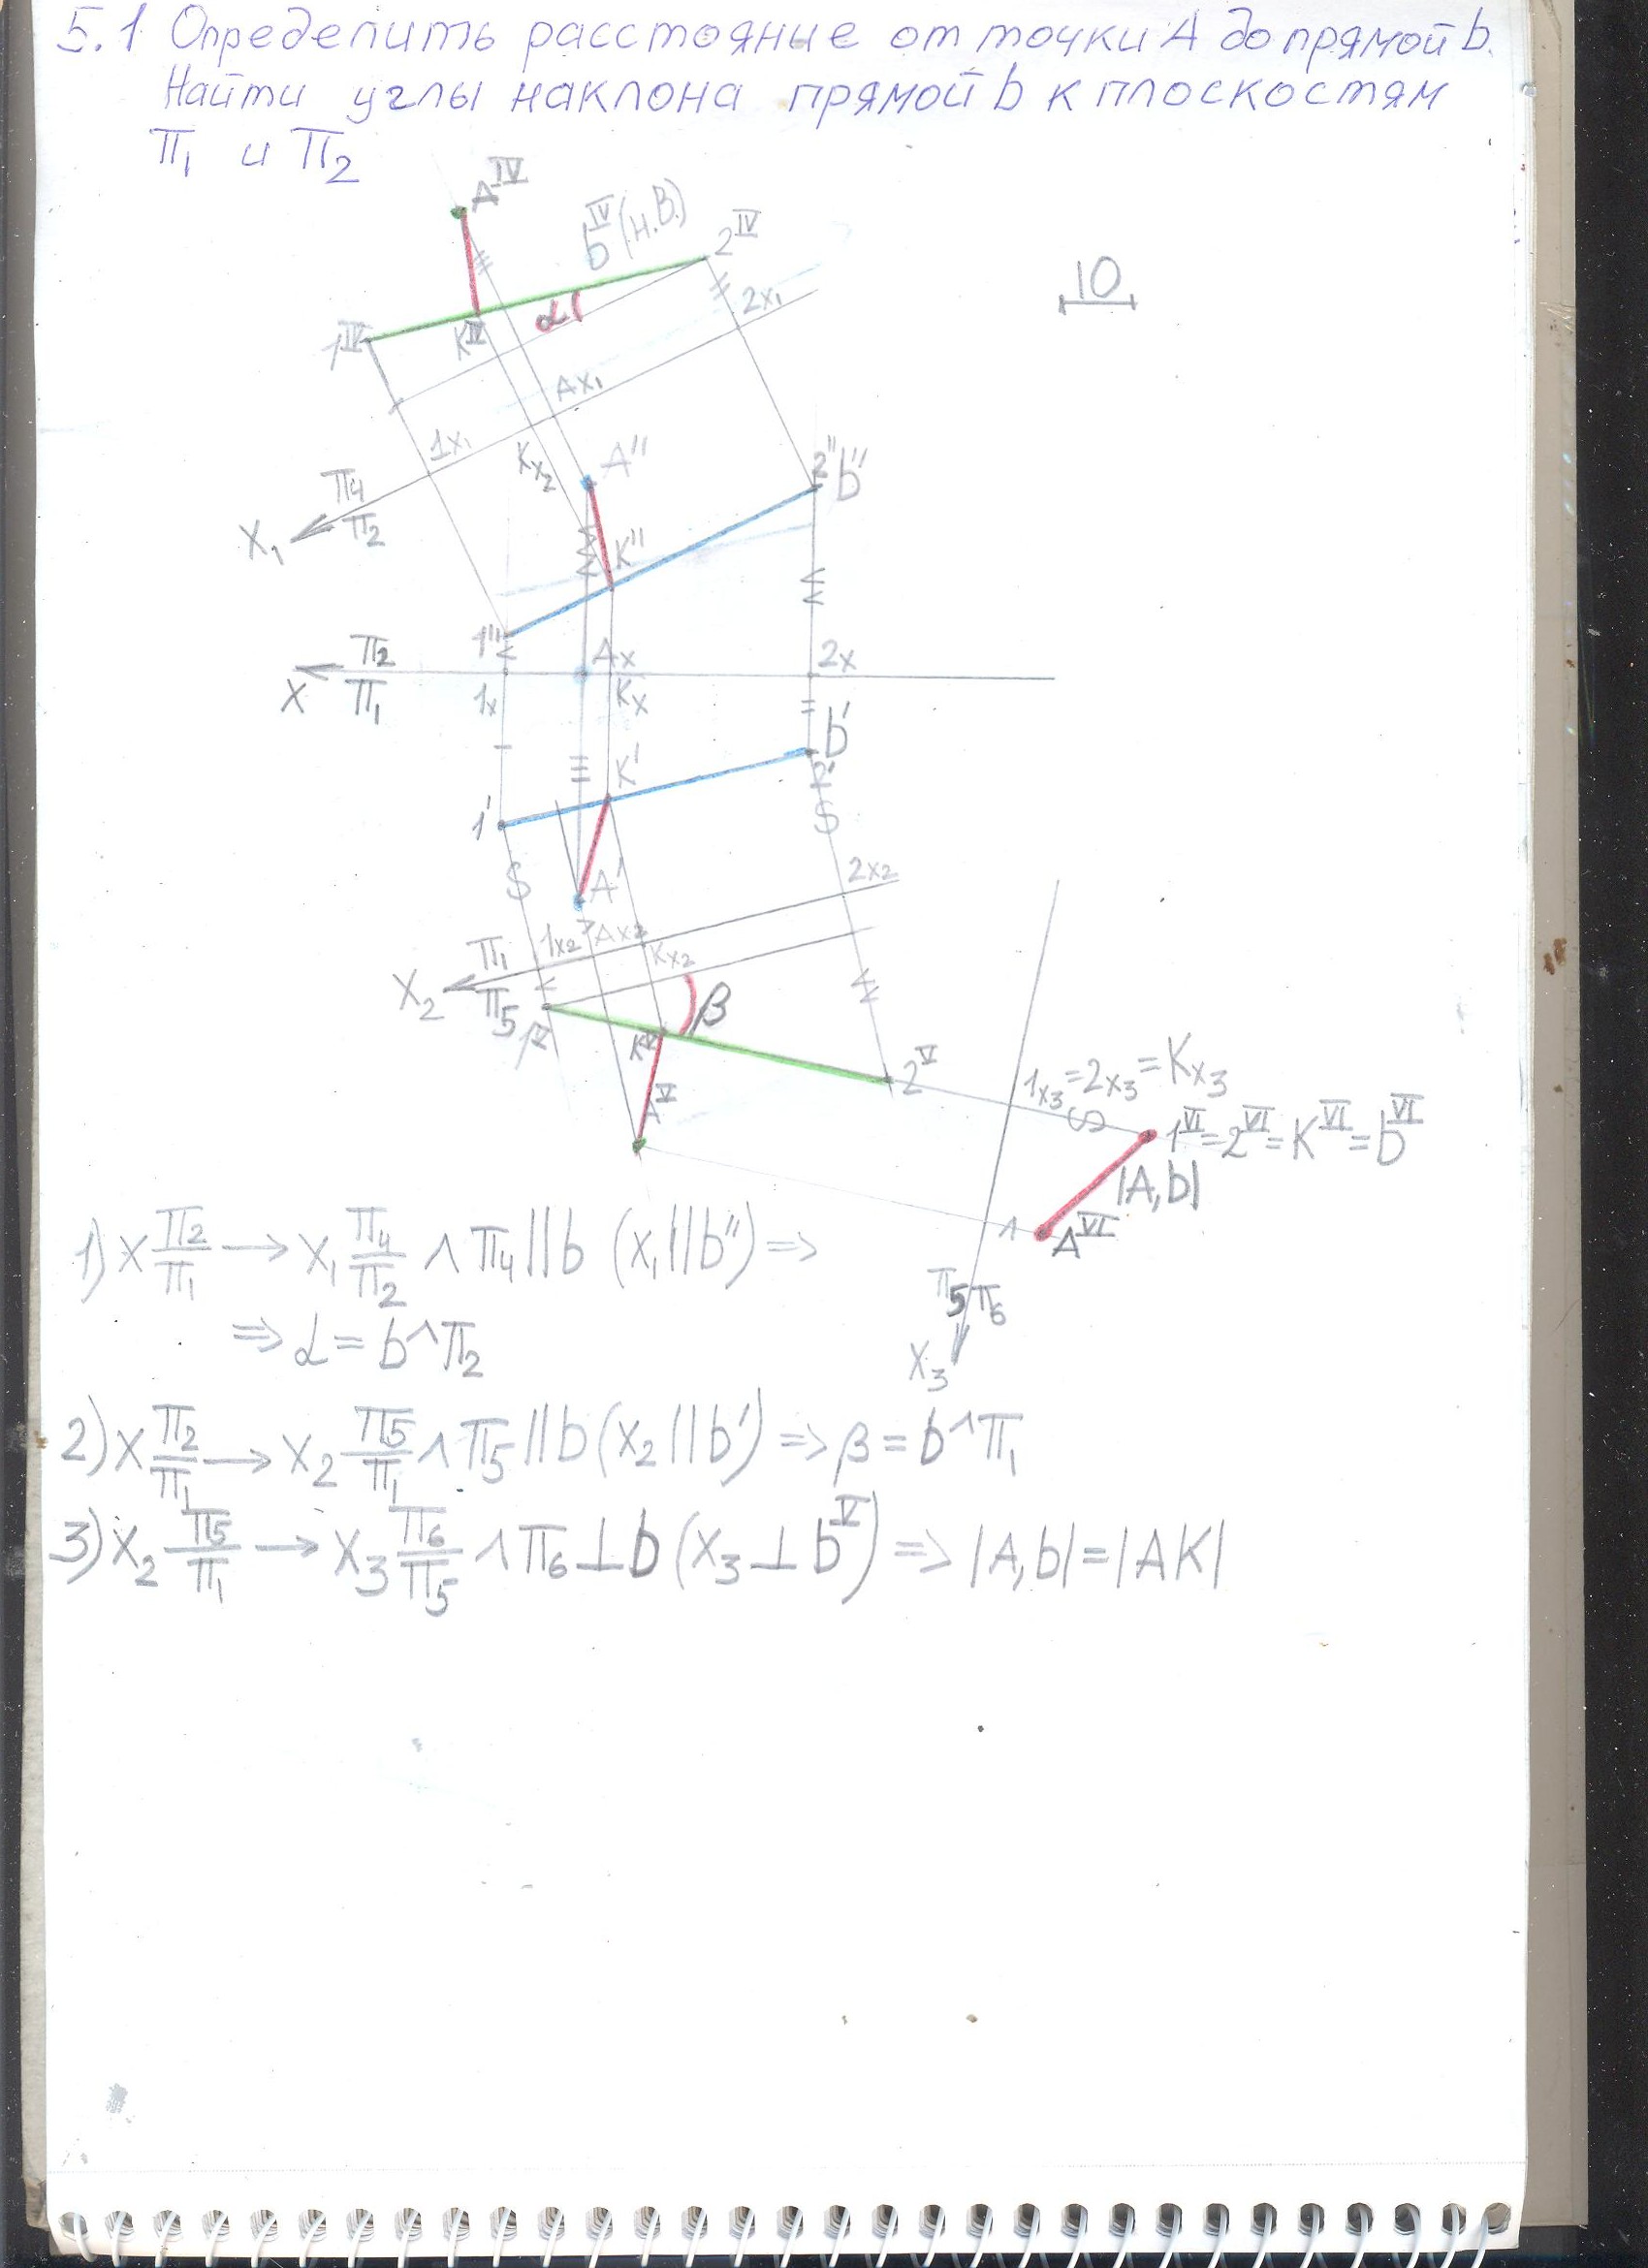 5.1 Определить расстояние от точки A до прямой b.
Найти углы наклона прямой b к плоскостям
П₁ и П₂
A^IV
b^IV (н.В.)
2^IV
10
α
2x₁
1^IV
K^IV
Ax₁
1x₁
Kx₂
A''
2'' b''
П₄
X₁ П₂
K''
1''
П₂
Ax
2x
X П₁
1x
Kx
b'
K'
2'
1'
S
S
A'
2x₂
П₁
1x₂
Ax₂
Kx₂
X₂ П₅
β
1^V
K^V
2^V
A^V
1x₃=2x₃=Kx₃
1^VI=2^VI=K^VI=b^VI
|A,b|
A^VI
П₅ П₆
X₃
1) x П₂/П₁ → x₁ П₄/П₂ ∧ П₄ || b (x₁ || b'') ⇒
⇒ α = b^П₂
2) x П₂/П₁ → x₂ П₅/П₁ ∧ П₅ || b (x₂ || b') ⇒ β = b^П₁
3) x₂ П₅/П₁ → x₃ П₆/П₅ ∧ П₆ ⊥ b (x₃ ⊥ b^V) ⇒ |A,b| = |AK|